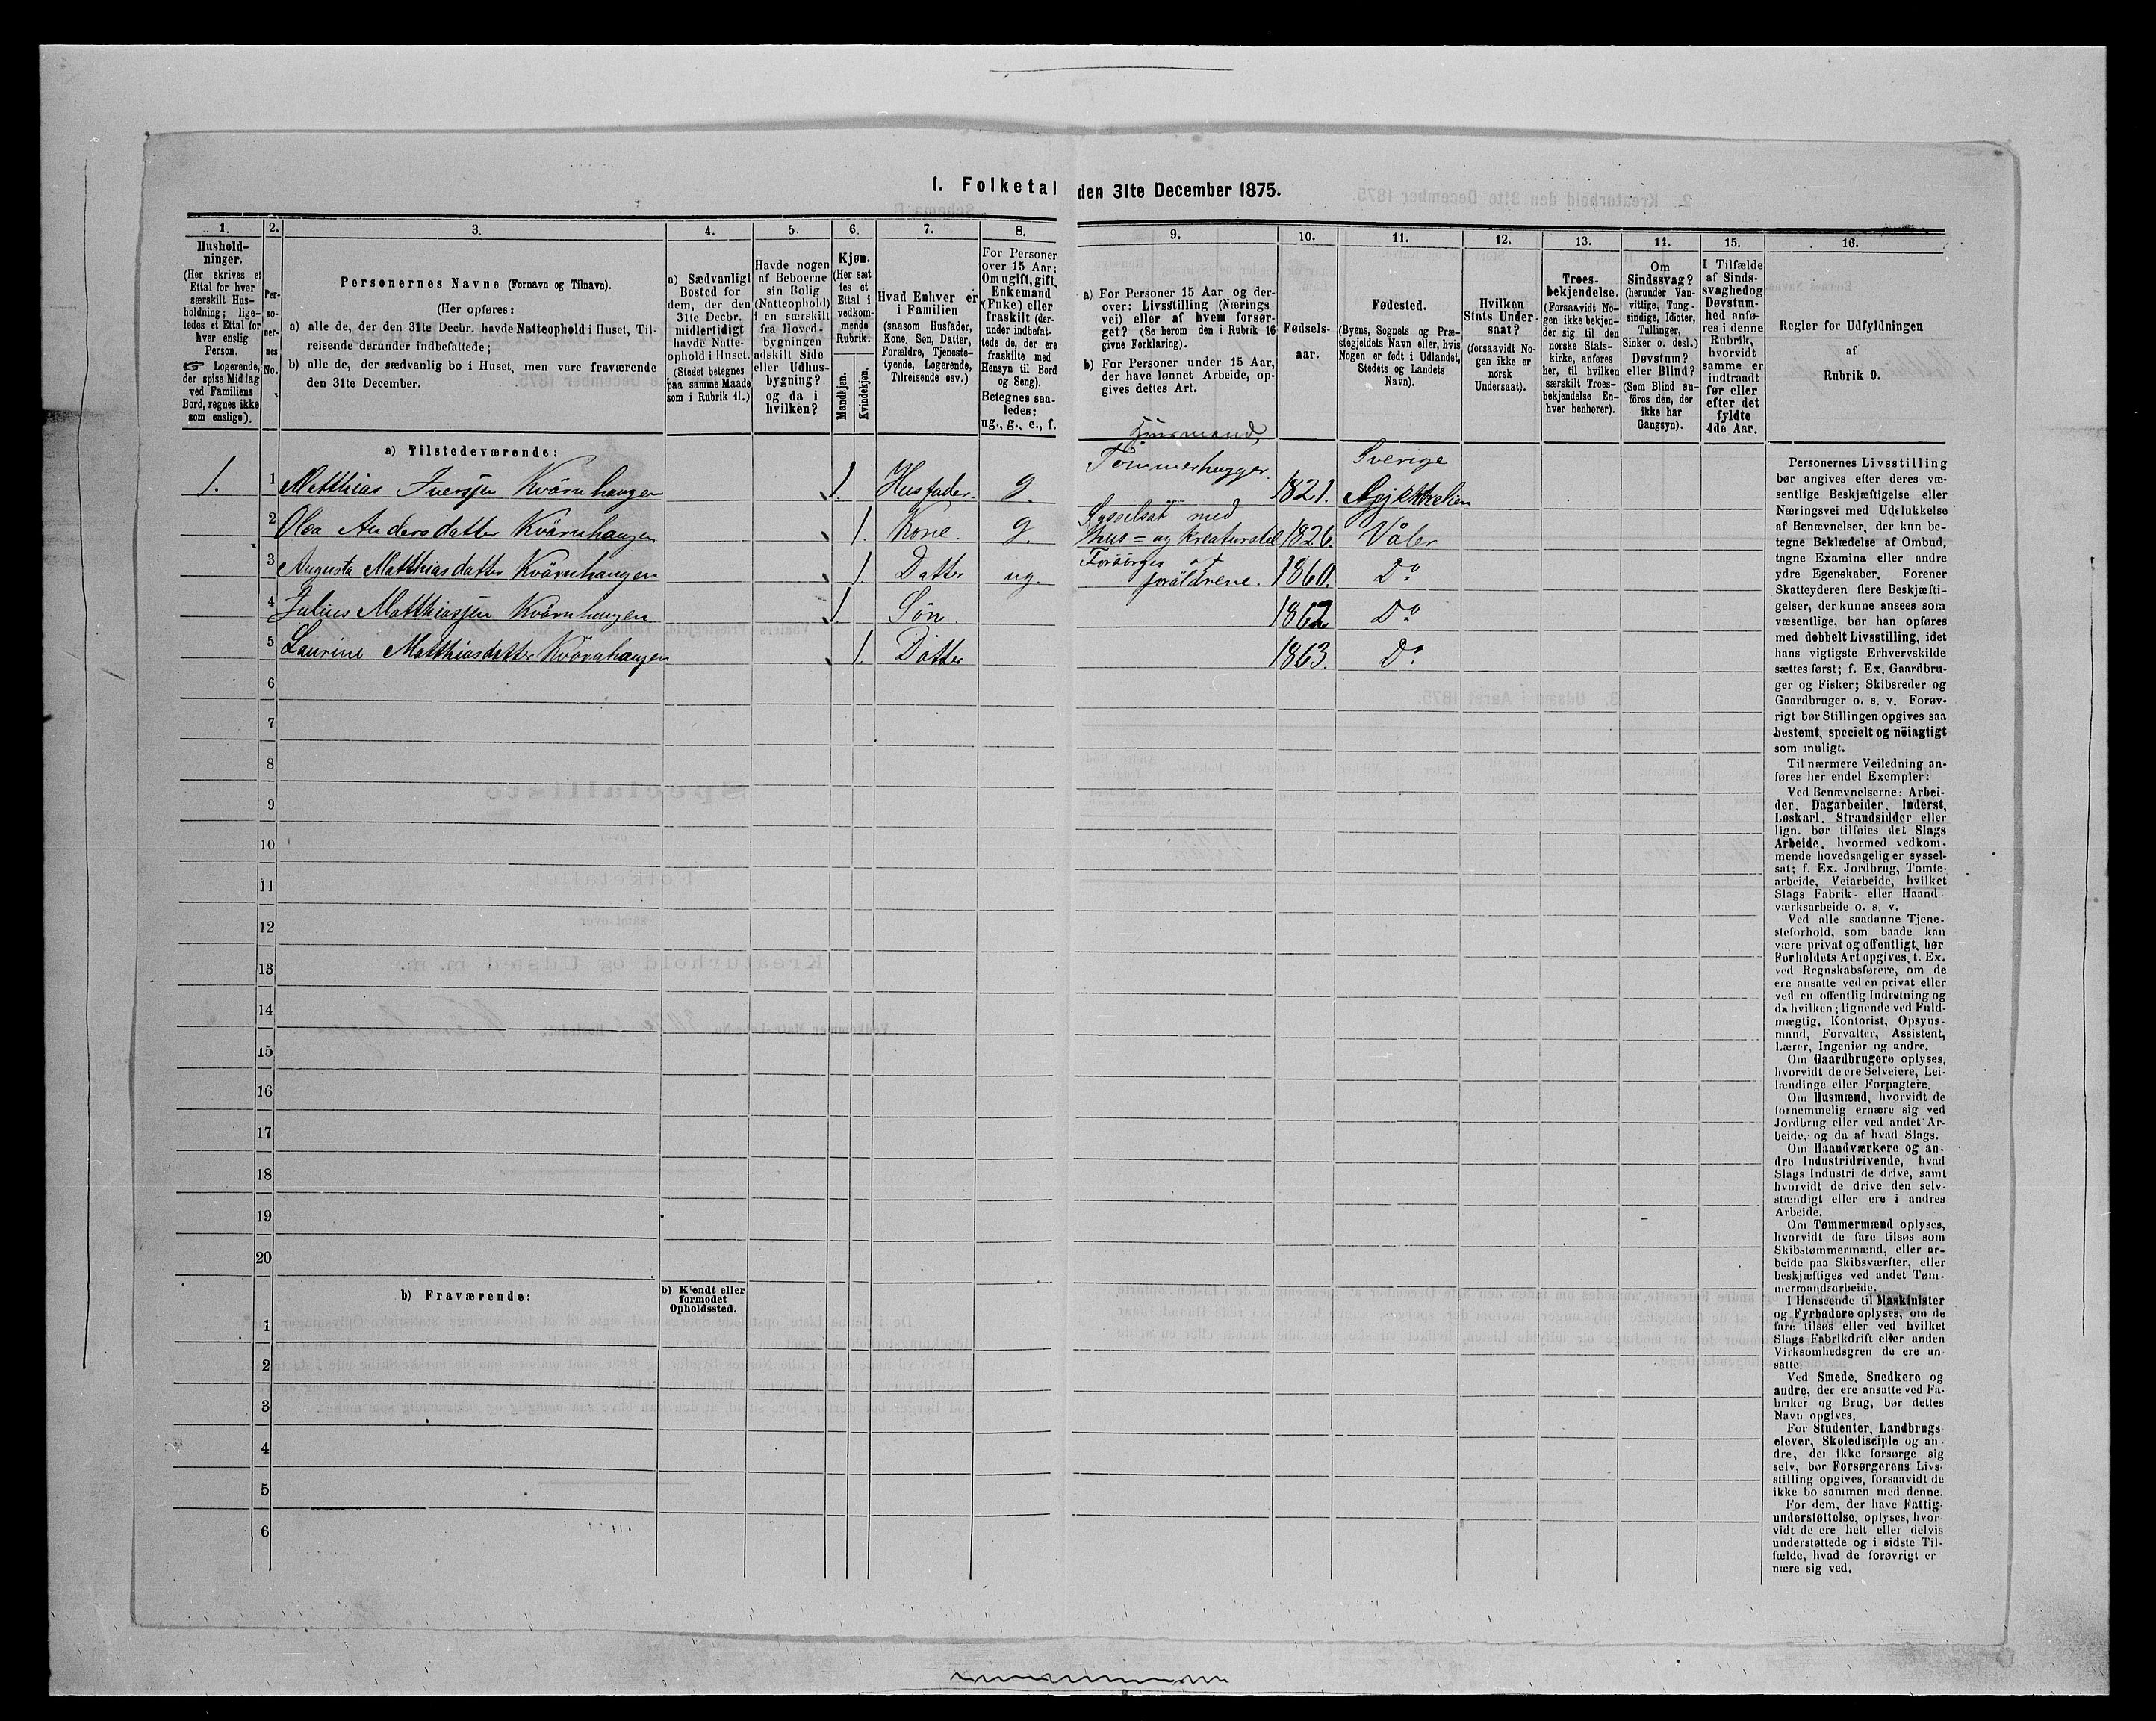 1. Folketal den 31te December 1875.
1.
Hushold-
ninger.
(Her skrives et
Ettal for hver
særskilt Hus-
holdning; lige-
ledes et Ettal for
hver enslig
Person.
☞ Logerende,
der spise Middag
ved Familiens
Bord, regnes ikke
som enslige).
2.
Per-
so-
ner-
nes
No.
3.
Personernes Navne (Fornavn og Tilnavn).
(Her opføres:
a) alle de, der den 31te Decbr. havde Natteophold i Huset, Til-
reisende derunder indbefattede;
b) alle de, der sædvanlig bo i Huset, men vare fraværende
den 31te December.
4.
a) Sædvanligt
Bosted for
dem, der den
31te Decbr.
midlertidigt
havde Natte-
ophold i Huset.
(Stedet betegnes
paa samme Maade
som i Rubrik 11.)
5.
Havde nogen
af Beboerne
sin Bolig
(Natteophold)
i en særskilt
fra Hoved-
bygningen
adskilt Side
eller Udhus-
bygning?
og da i
hvilken?
6.
Kjøn.
(Her sæt
tes et
Ettal i
vedkom-
mende
Rubrik.
Mandkjøn.
Kvindekjøn.
7.
Hvad Enhver er
i Familien
(saasom Husfader,
Kone, Søn, Datter,
Forældre, Tjeneste-
tyende, Logerende,
Tilreisende osv.)
8.
For Personer
over 15 Aar:
Om ugift, gift,
Enkemand
(Enke) eller
fraskilt (der-
under indbefat-
tede de, der ere
fraskilte med
Hensyn til Bord
og Seng).
Betegnes saa-
ledes:
ug., g., e., f.
9.
a) For Personer 15 Aar og der-
over: Livsstilling (Nærings
vei) eller af hvem forsør-
get? (Se herom den i Rubrik 16
givne Forklaring).
b) For Personer under 15 Aar,
der have lønnet Arbeide, op-
gives dettes Art.
10.
Fødsels-
aar.
11.
Fødested.
(Byens, Sognets og Præ-
stegjeldets Navn eller, hvis
Nogen er født i Udlandet,
Stedets og Landets
Navn).
12.
Hvilken
Stats Under-
saat?
(forsaavidt No-
gen ikke er
norsk
Undersaat).
13.
Troes-
bekjendelse.
(Forsaavidt No-
gen ikke bekjen-
der sig til den
norske Stats-
kirke, anføres
her, til hvilken
særskilt Troes-
bekjendelse En-
hver henhører).
14.
Om
Sindssvag?
(herunder Van-
vittige, Tung-
sindige, Idioter,
Tullinger,
Sinker o. desl.)
Døvstum?
eller Blind?
(Som Blind an-
føres den, der
ikke har
Gangsyn).
15.
I Tilfælde
af Sinds-
svaghed og
Døvstum-
hed anfø-
res i denne
Rubrik,
hvorvidt
samme er
indtraadt
før eller
efter det
fyldte
4de Aar.
16.
Regler for Udfyldningen
af
Rubrik 9.
a) Tilstedeværende:
1. 1 Matthias Iversjen Kvärnhaugen 1. Husfader. g. Tömmerhugger. 1821. Sverige
2 Olea Andersdatter Kvärnhaugen 1. Kone. g. Sysselsat med hus= og Kreaturstel 1826. Våler
3 Augusta Matthiasdatter Kvärnhaugen 1 Datter ug. Forsörges af foräldrene. 1860. Do
4 Julius Matthiasjen Kvärnhaugen 1 Sön. 1862 Do
5 Laurine Matthiasdatter Kvärnhaugen 1. Datter 1863. Do
6
7
8
9
10
11
12
13
14
15
16
17
18
19
20
b) Fraværende:
b) Kjendt eller
formodet
Opholdssted.
1
2
3
4
5
6
Personernes Livsstilling
bør angives efter deres væ-
sentlige Beskjæftigelse eller
Næringsvei med Udelukkelse
af Benævnelser, der kun be-
tegne Beklædelse af Ombud,
tagne Examina eller andre
ydre Egenskaber. Forener
Skatteyderen flere Beskjæfti-
gelser, der kunne ansees som
væsentlige, bør han opføres
med dobbelt Livsstilling, idet
hans vigtigste Erhvervskilde
sættes først; f. Ex. Gaardbru-
ger og Fisker; Skibsreder og
Gaardbruger o. s. v. Forøv-
rigt bør Stillingen opgives saa
bestemt, specielt og nöiagtigt
som muligt.
Til nærmere Veiledning an-
føres her endel Exempler:
Ved Benævnelserne: Arbei-
der, Dagarbeider, Inderst,
Løskarl, Strandsidder eller
lign. bør tilføies det Slags
Arbeide, hvormed vedkom-
mende hovedsagelig er syssel-
sat; f. Ex. Jordbrug, Tomte-
arbeide, Veiarbeide, hvilket
Slags Fabrik- eller Haand-
værksarbeide o. s. v.
Ved alle saadanne Tjene-
steforhold, som baade kan
være privat og offentligt, bør
Forholdets Art opgives, t. Ex.
ved Regnskabsførere, om de
ere ansatte ved en privat eller
ved en offentlig Indretning og
da hvilken; lignende ved Fuld-
mægtig, Kontorist, Opsyns-
mand, Forvalter, Assistent,
Lærer, Ingeniør og andre.
Om Gaardbrugere oplyses,
hvorvidt de ere Selveiere, Lei-
lændinge eller Forpagtere.
Om Husmænd, hvorvidt de
fornemmelig ernære sig ved
Jordbrug eller ved andet Ar-
beide, og da af hvad Slags.
Om Haandværkere og an-
dre Industridrivende, hvad
Slags Industri de drive, samt
hvorvidt de drive den selv-
stændigt eller ere i andres
Arbeide.
Om Tømmermænd oplyses,
hvorvidt de fare tilsøs som
Skibstømmermænd, eller ar-
beide paa Skibsværfter, eller
beskjæftiges ved andet Tøm-
mermandsarbeide.
I Henseende til Maskinister
og Fyrbødere oplyses, om de
fare tilsøs eller ved hvilket
Slags Fabrikdrift eller anden
Virksomhedsgren de ere an-
satte.
Ved Smede, Snedkere og
andre, der ere ansatte ved Fa-
briker og Brug, bør dettes
Navn opgives.
For Studenter, Landbrugs-
elever, Skoledisciple og an-
dre, der ikke forsørge sig
selv, bør Forsørgerens Livs-
stilling opgives, forsaavidt de
ikke bo sammen med denne.
For dem, der have Fattig-
understøttelse, oplyses, hvor-
vidt de ere helt eller delvis
understøttede og i sidste Til-
fælde, hvad de forøvrigt er
nære sig ved.